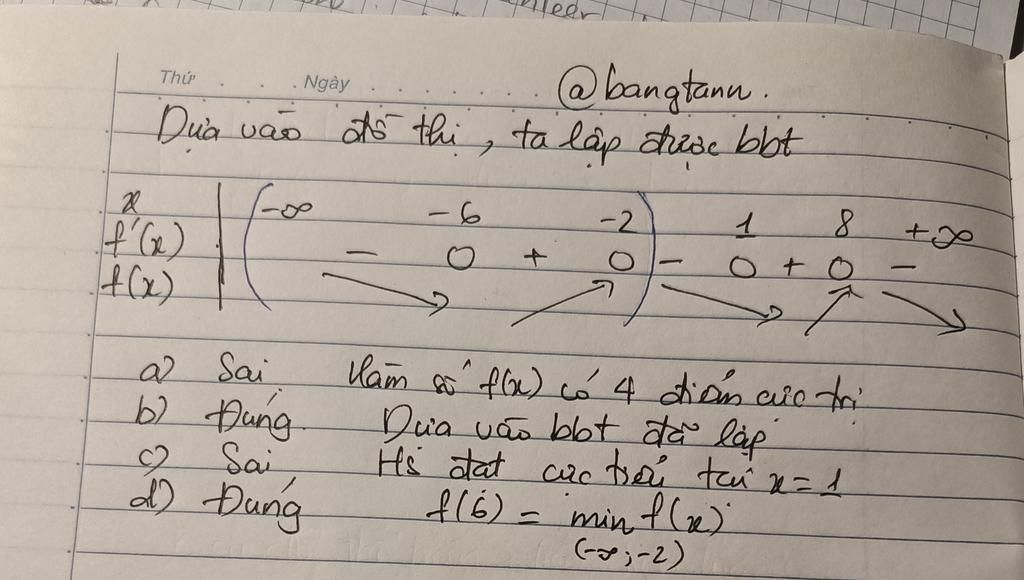 Thứ . . . . Ngày . . . . . . . @bangtann.
Dựa vào đồ thị, ta lập được bbt
x | -∞ -6 -2 1 8 +∞
f'(x) | - 0 + 0 - 0 + 0 -
f(x) | ↘ ↗ ↘ ↗ ↘
a) Sai Hàm số f(x) có 4 điểm cực trị
b) Đúng. Dựa vào bbt đã lập
c) Sai Hs đạt cực tiểu tại x = 1
d) Đúng f(6) = min f(x)
(-∞; -2)